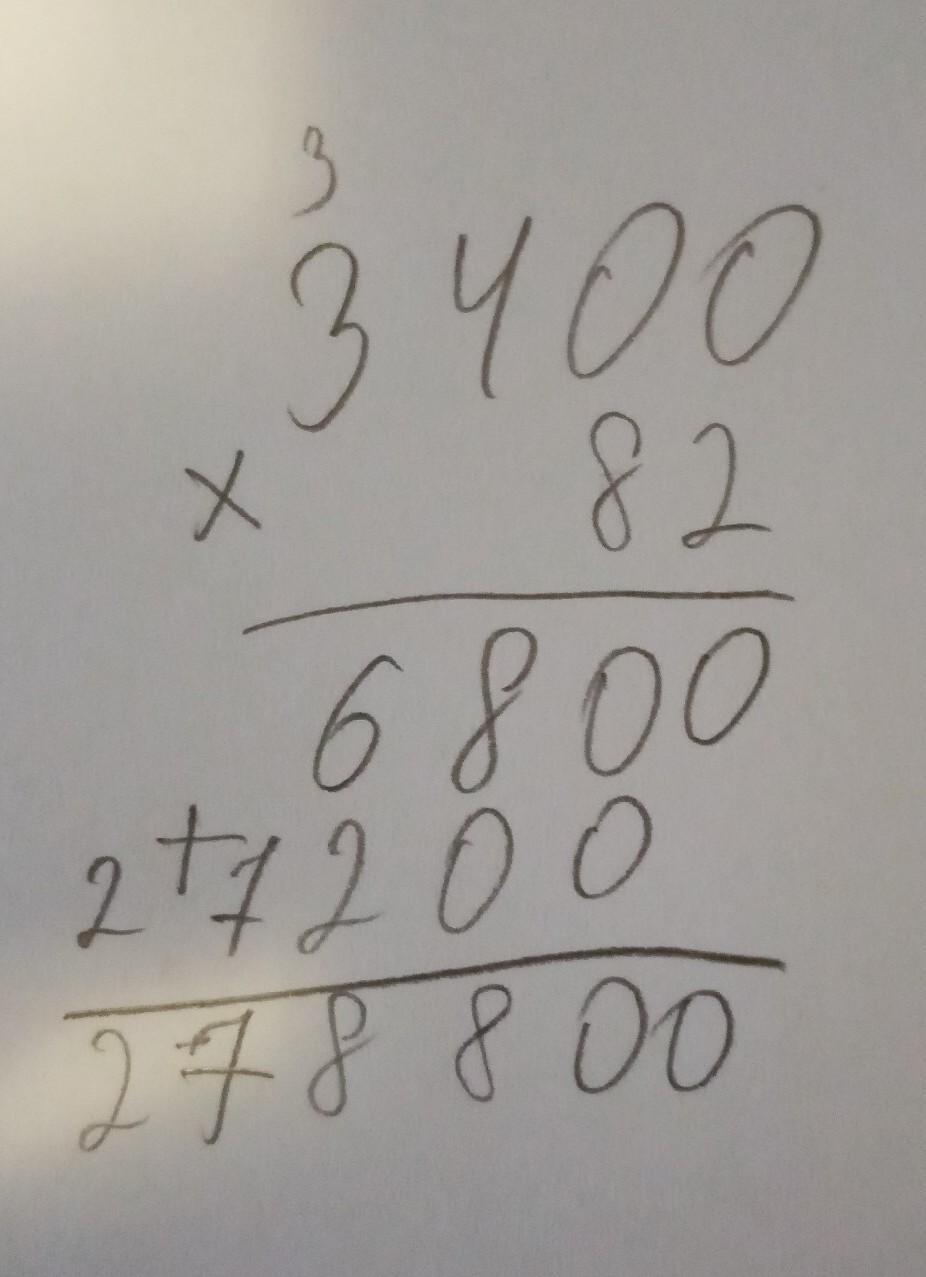 3
3400
× 82
6800
2+7200
278800